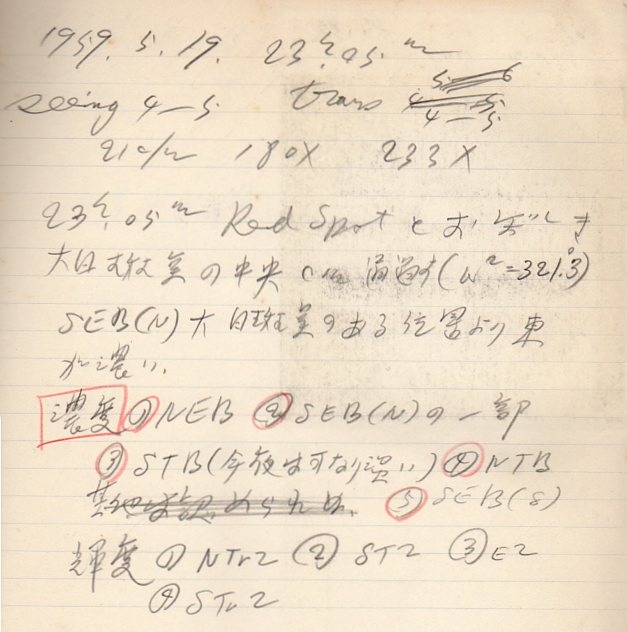 1959. 5. 19. 23h.05m
seeing 4—5 trans 4—5
21c/m 180X 233X
23h.05m Red Spot と
大白斑 の中央 通過す(ω²=321.°3)
SEB(N)大白斑 のある位置より東
が濃い.
濃度 ① NEB ② SEB(N)の一部
③ STB(今夜はかなり濃い) ④ NTB
⑤ SEB(S)
輝度 ① NTrZ ② STZ ③ EZ
④ STrZ